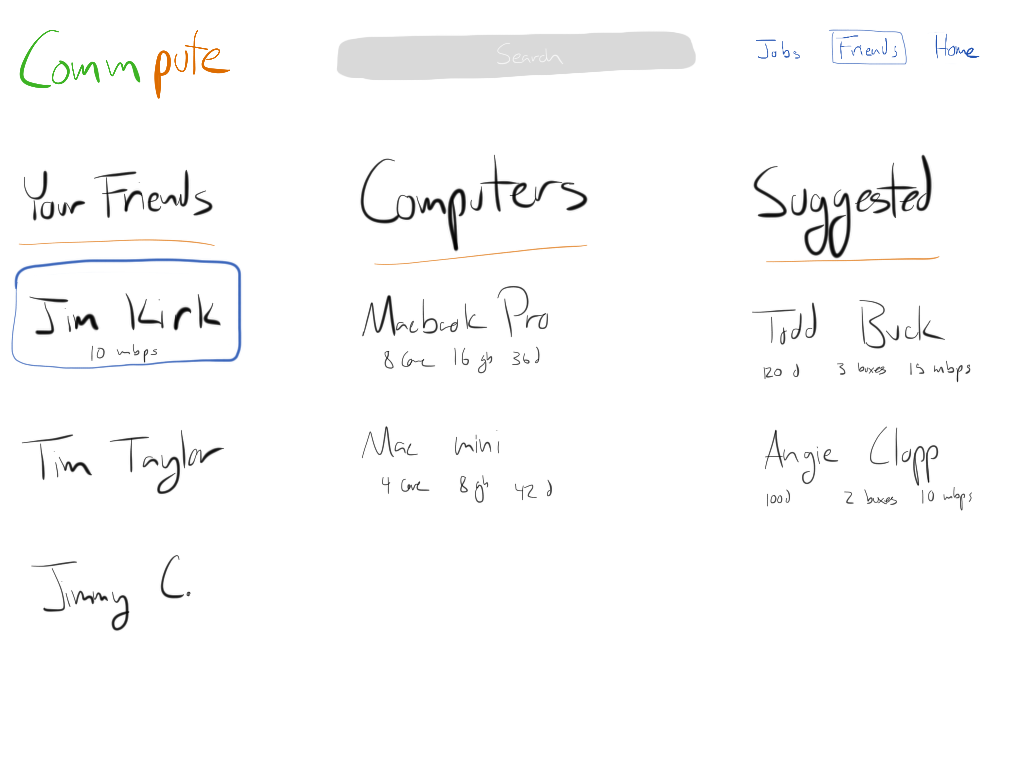 Commpute
Search
Jobs Friends Home
Your Friends
Jim Kirk
10 mbps
Tim Taylor
Jimmy C.
Computers
Macbook Pro
8 core 16 gb 36 d
Mac mini
4 core 8 gb 42 d
Suggested
Todd Buck
120 d 3 boxes 15 mbps
Angie Clapp
100d 2 boxes 10 mbps